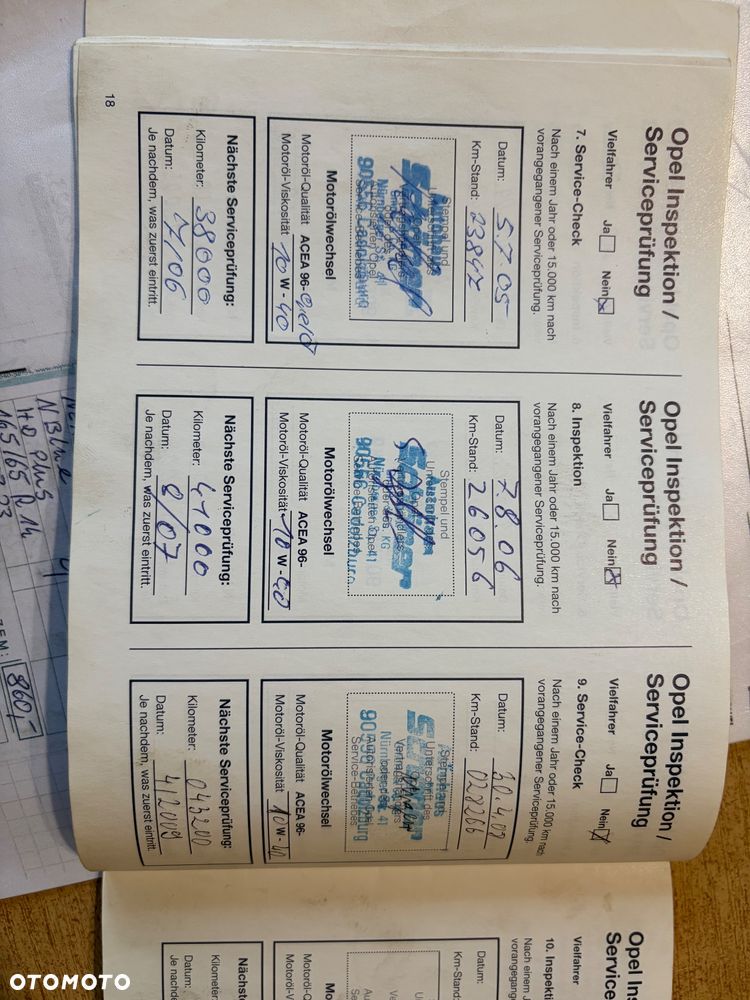 Opel Inspektion /
Serviceprüfung
Vielfahrer Ja Nein x
7. Service-Check
Nach einem Jahr oder 15.000 km nach
vorangegangener Serviceprüfung.
Datum: 5.7.05
Km-Stand: 23847
Stempel und
Motorölwechsel
Motoröl-Qualität ACEA 96-
Motoröl-Viskosität 10 W - 40
Nächste Serviceprüfung:
Kilometer: 38000
Datum: 7/06
Je nachdem, was zuerst eintritt.
18
Opel Inspektion /
Serviceprüfung
Vielfahrer Ja Nein x
8. Inspektion
Nach einem Jahr oder 15.000 km nach
vorangegangener Serviceprüfung.
Datum: 7.8.06
Km-Stand: 26056
Stempel und
90556 Cadolzburg
Motorölwechsel
Motoröl-Qualität ACEA 96-
Motoröl-Viskosität 10 W - 40
Nächste Serviceprüfung:
Kilometer: 41000
Datum: 8/07
Je nachdem, was zuerst eintritt.
Opel Inspektion /
Serviceprüfung
Vielfahrer Ja Nein x
9. Service-Check
Nach einem Jahr oder 15.000 km nach
vorangegangener Serviceprüfung.
Datum:
Km-Stand: 028266
Unterschrift des
Service-Betriebes
Motorölwechsel
Motoröl-Qualität ACEA 96-
Motoröl-Viskosität 10 W - 40
Nächste Serviceprüfung:
Kilometer: 043200
Datum: 4/2009
Je nachdem, was zuerst eintritt.
Opel Ins
Service
Vielfahrer
10. Inspekti
Nach einem
vorangegang
Datum:
Km-Stand:
Mo
Motoröl-Q
Motoröl-V
Nächst
Kilometer:
Datum:
Je nachde
HQ Plus
165/65 R 14
860,-
OTOMOTO